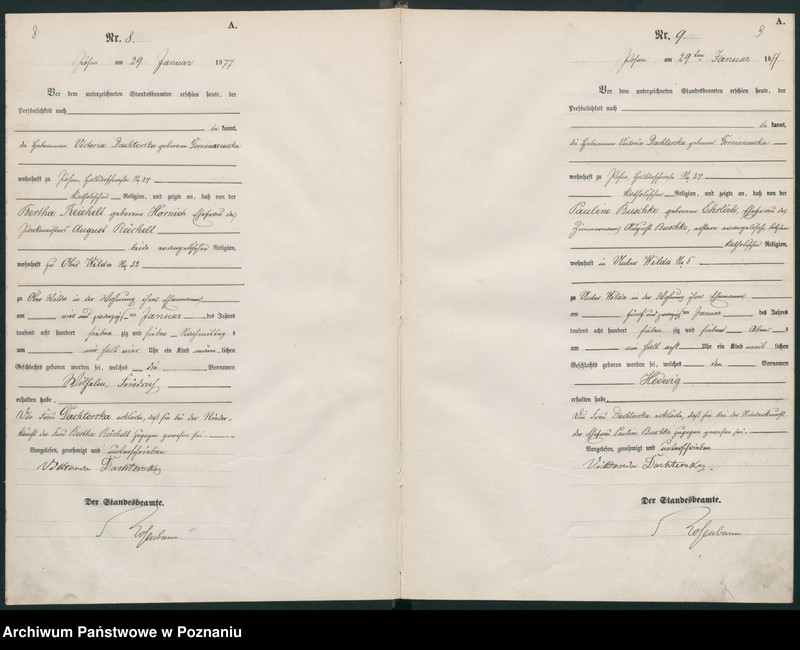 8
A.
Nr. 8.
Posen am 29. Januar 1877
Vor dem unterzeichneten Standesbeamten erschien heute, der
Persönlichkeit nach
be kannt,
die Hebamme Victoria Dachterska geborene
wohnhaft zu Posen, No 24
katholischer Religion, und zeigte an, daß von der
Bertha Reichelt geborene Hornich Ehefrau des
August Reichelt
beide evangelischer Religion,
wohnhaft zu Ober Wilda No 32
zu Ober Wilda in der Wohnung ihres Ehemannes
am vier und zwanzigsten Januar des Jahres
tausend acht hundert sieben zig und sieben Nachmittags
um ein halb vier Uhr ein Kind männ lichen
Geschlechts geboren worden sei, welches die Vornamen
Wilhelm, Friedrich
erhalten habe.
Die Frau Dachterska erklärte, daß sie bei der Nieder-
kunft der Frau Bertha Reichelt zugegen gewesen sei.
Vorgelesen, genehmigt und unterschrieben
Viktoria Dachterska
Der Standesbeamte.
9
A.
Nr. 9.
Posen am 29ten Januar 1877
Vor dem unterzeichneten Standesbeamten erschien heute, der
Persönlichkeit nach
be kannt,
die Hebamme Victoria Dachterska geborene
wohnhaft zu Posen, No 24
katholischer Religion, und zeigte an, daß von der
Pauline Buschke geborene Ehrlich, Ehefrau des
Zimmermanns August Buschke, erstere evangelischer, letzterer
katholischer Religion,
wohnhaft in Unter Wilda No 5
zu Unter Wilda in der Wohnung ihres Ehemannes
am fünf und zwanzigsten Januar des Jahres
tausend acht hundert sieben zig und sieben Abends
um ein halb acht Uhr ein Kind weib lichen
Geschlechts geboren worden sei, welches den Vornamen
Hedwig
erhalten habe
Die Frau Dachterska erklärte, daß sie bei der Niederkunft
der Ehefrau Pauline Buschke zugegen gewesen sei.
Vorgelesen, genehmigt und unterschrieben
Viktoria Dachterska.
Der Standesbeamte.
Archiwum Państwowe w Poznaniu